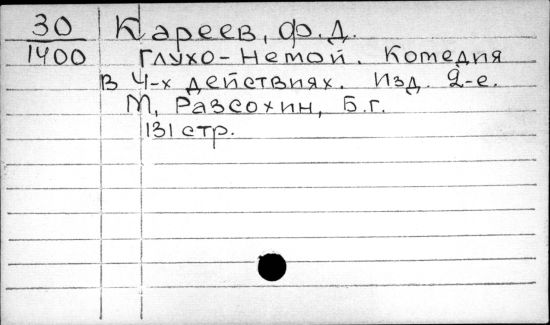 30 Кареев, Ф.Д.
1400 Глухо-Немой. Комедия
в 4-х действиях. Изд. 2-е.
М, Разсохин, Б.г.
131 стр.